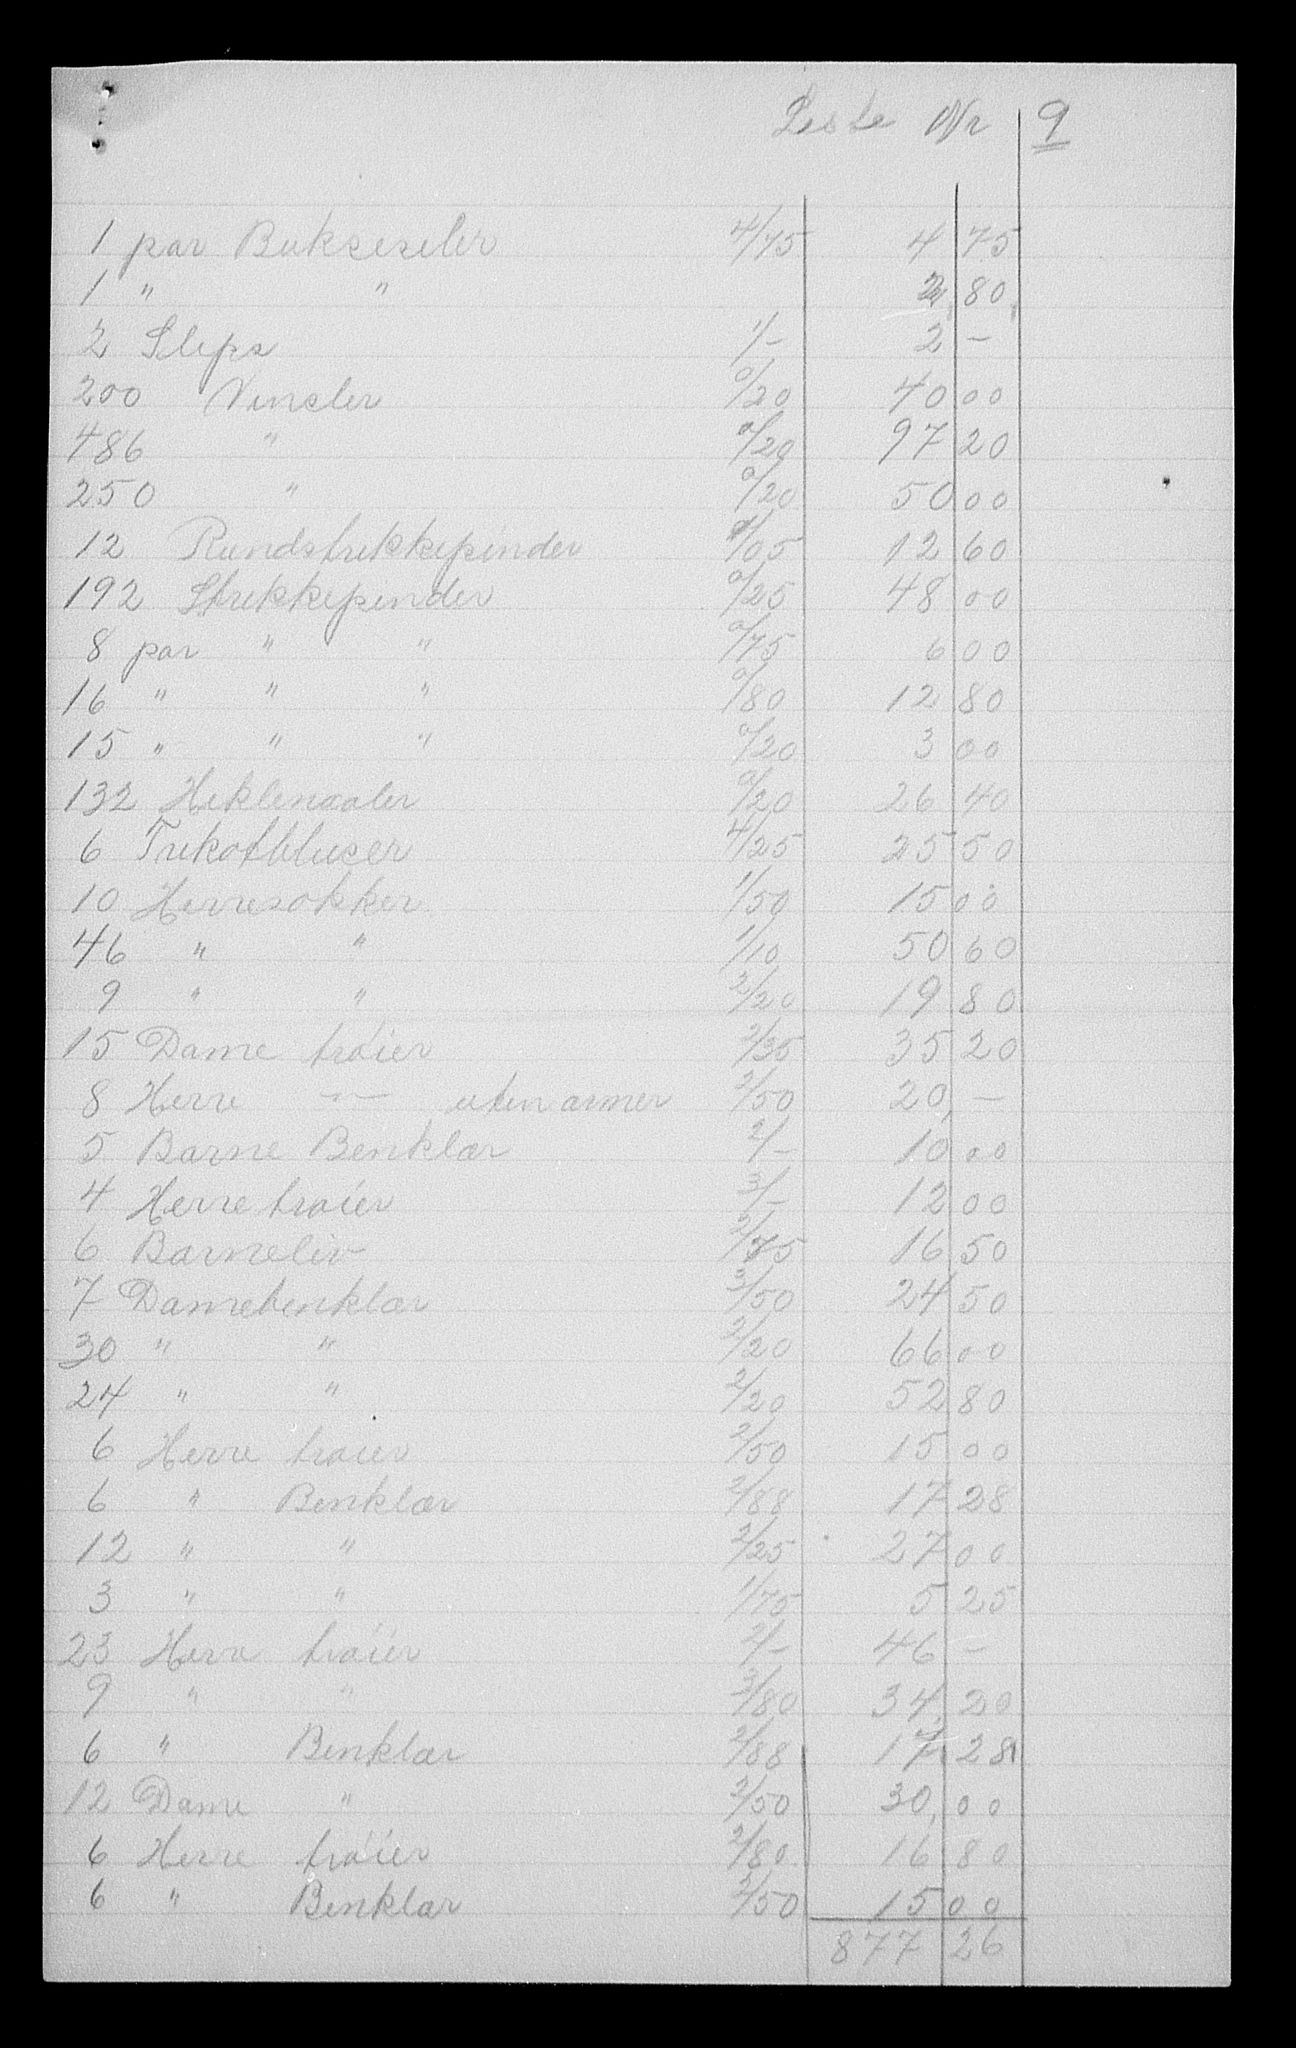 Liste Nr 9
1 par Bukseseler 4/75 4 75
1 " " 2 80
2 Slips 1/- 2 -
200 Vinsler 0/20 40 00
486 " 0/20 97 20
250 " 0/20 50 00
12 Rundstrikkepinder 1/05 12 60
192 Strikkepinder 0/25 48 00
8 par " " 0/75 6 00
16 " " " 0/80 12 80
15 " " " 0/20 3 00
132 Heklenaaler 0/20 26 40
6 Trikotbluser 4/25 25 50
10 Herresokker 1/50 15 00
46 " " 1/10 50 60
9 " " 2/20 19 80
15 Dame trøier 2/35 35 20
8 Herre -"- uten armer 2/50 20, -
5 Barne Benklær 2/- 10 00
4 Herre trøier 3/- 12 00
6 Barneliv 2/75 16 50
7 Damebenklær 3/50 24 50
30 " " 2/20 66 00
24 " " 2/20 52 80
6 Herre trøier 2/50 15 00
6 " Benklær 2/88 17 28
12 " " 2/25 27 00
3 " " 1/75 5 25
23 Herre trøier 2/- 46 -
9 " " 3/80 34, 20
6 " Benklær 2/88 17 28
12 Dame " 2/50 30, 00
6 Herre trøier 2/80 16 80
6 " Benklær 2/50 15 00
877 26